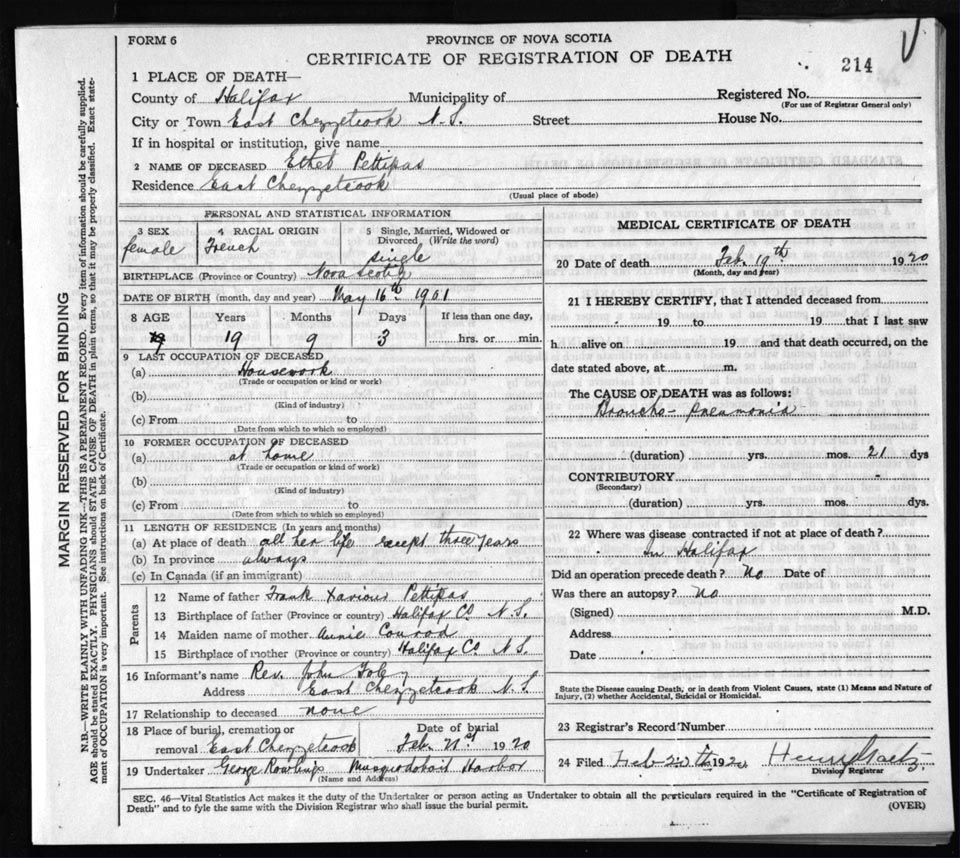 FORM 6
PROVINCE OF NOVA SCOTIA
CERTIFICATE OF REGISTRATION OF DEATH
214
MARGIN RESERVED FOR BINDING
N.B.—WRITE PLAINLY WITH UNFADING INK—THIS IS A PERMANENT RECORD. Every item of information should be carefully supplied.
AGE should be stated EXACTLY. PHYSICIANS should STATE CAUSE OF DEATH in plain terms, so that it may be properly classified. Exact state-
ment of OCCUPATION is very important. See instructions on back of Certificate.
1 PLACE OF DEATH—
County of Halifax Municipality of Registered No.
(For use of Registrar General only)
City or Town East Chezzetcook N.S. Street House No.
If in hospital or institution, give name
2 NAME OF DECEASED Ethel Pettipas
Residence East Chezzetcook
(Usual place of abode)
PERSONAL AND STATISTICAL INFORMATION
3 SEX 4 RACIAL ORIGIN 5 Single, Married, Widowed or
Divorced (Write the word)
female French single
BIRTHPLACE (Province or Country) Nova Scotia
DATE OF BIRTH (month, day and year) May 16th 1901
8 AGE Years Months Days If less than one day,
19 9 3 hrs. or min.
9 LAST OCCUPATION OF DECEASED
(a) Housework
(Trade or occupation or kind or work)
(b)
(Kind of industry)
(c) From to
(Date from which to which so employed)
10 FORMER OCCUPATION OF DECEASED
(a) at home
(Trade or occupation or kind of work)
(b)
(Kind of industry)
(c) From to
(Date from which to which so employed)
11 LENGTH OF RESIDENCE (In years and months)
(a) At place of death all her life except three years
(b) In province always
(c) In Canada (if an immigrant)
Parents
12 Name of father Frank Xavious Pettipas
13 Birthplace of father (Province or country) Halifax Co N.S.
14 Maiden name of mother Annie Conrod
15 Birthplace of mother (Province or country) Halifax Co N.S.
16 Informant's name Rev. John
Address East Chezzetcook N.S.
17 Relationship to deceased none
18 Place of burial, cremation or Date of burial
removal East Chezzetcook Feb 21st 1920
19 Undertaker George Rowlings Musquodoboit Harbor
(Name and Address)
MEDICAL CERTIFICATE OF DEATH
20 Date of death Feb. 19th 1920
(Month, day and year)
21 I HEREBY CERTIFY, that I attended deceased from
19 to 19 that I last saw
h alive on 19 and that death occurred, on the
date stated above, at m.
The CAUSE OF DEATH was as follows:
Broncho-Pneumonia
(duration) yrs. mos. 21 dys
CONTRIBUTORY
(Secondary)
(duration) yrs. mos. dys.
22 Where was disease contracted if not at place of death?
In Halifax
Did an operation precede death? No Date of
Was there an autopsy? No
(Signed) M.D.
Address
Date
State the Disease causing Death, or in death from Violent Causes, state (1) Means and Nature of
Injury, (2) whether Accidental, Suicidal or Homicidal.
23 Registrar's Record Number
24 Filed Feb 20th 1920 Henry Gaetz
Division Registrar
SEC. 46—Vital Statistics Act makes it the duty of the Undertaker or person acting as Undertaker to obtain all the particulars required in the "Certificate of Registration of
Death" and to fyle the same with the Division Registrar who shall issue the burial permit.
(OVER)